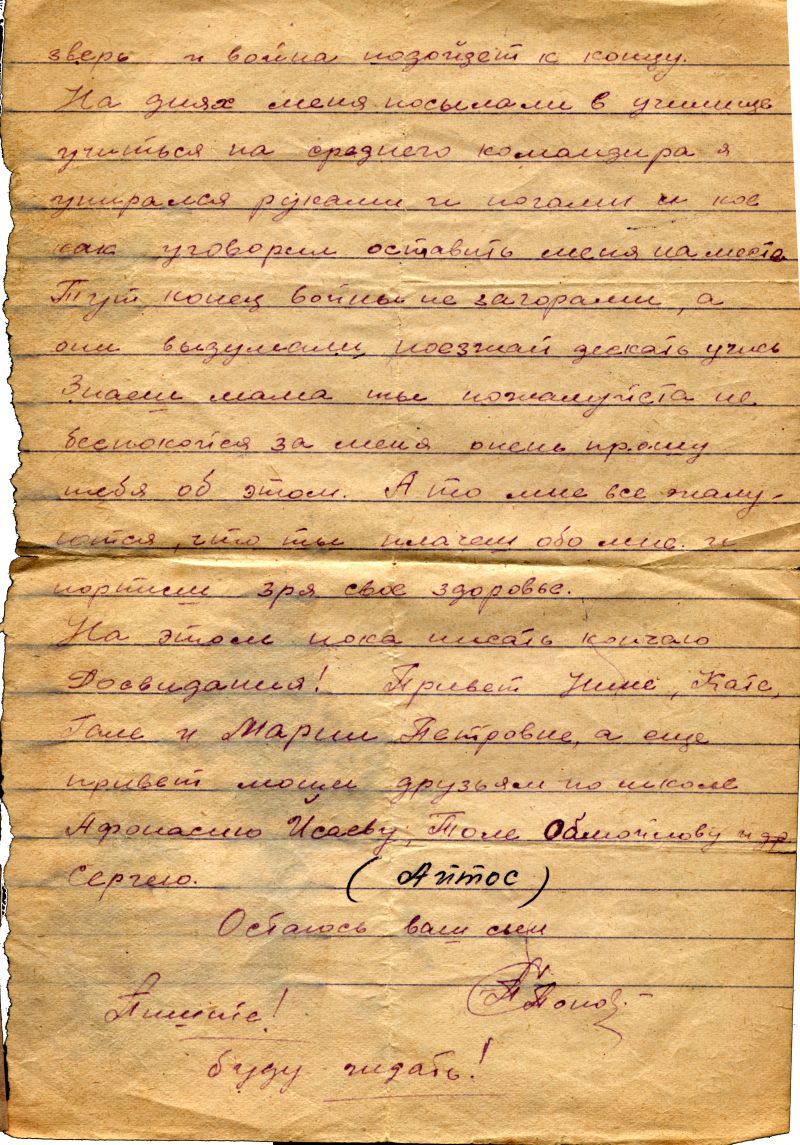 зверь и война подойдет к концу.
На днях меня посылали в училище
учиться на среднего командира я
упирался руками и ногами и кое
как уговорил оставить меня на месте
Тут конец войны не загорами, а
они выдумали, поезжай дескать учись
Знаеш мама ты пожалуйста не
беспокойся за меня очень прошу
тебя об этом. А то мне все жалу-
ются, что ты плачеш обо мне и
портиш зря свое здоровье.
На этом пока писать кончаю
Досвидания! Привет Нине, Кате,
Гале и Марии Петровне, а еще
привет моим друзьям по школе
Афонасию Исаеву, Толе Обмойлову и др
Сергею. (Айтос)
Остаюсь ваш сын
Пишите!
буду ждать!